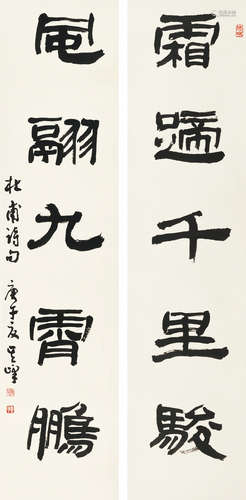 霜蹄千里駿
風翮九霄鵬
杜甫詩句 庚午夏